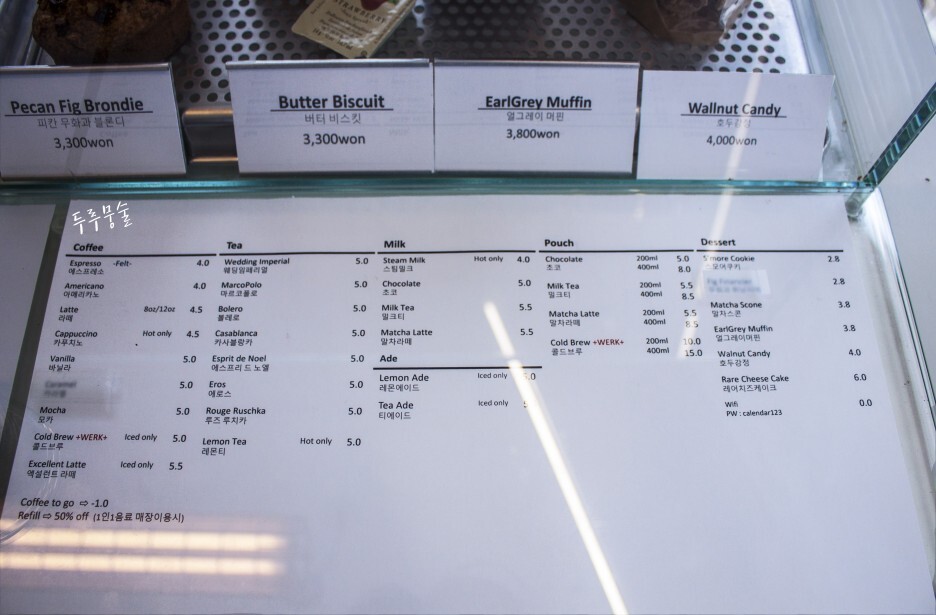 STRAWBERRY
Pecan Fig Brondie
피칸 무화과 블론디
3,300won
Butter Biscuit
버터 비스킷
3,300won
EarlGrey Muffin
얼그레이 머핀
3,800won
Wallnut Candy
호두강정
4,000won
두루뭉술
Coffee
Espresso -Felt- 4.0
에스프레소
Americano 4.0
아메리카노
Latte 8oz/12oz 4.5
라떼
Cappuccino Hot only 4.5
카푸치노
Vanilla 5.0
바닐라
Caramel 5.0
Mocha 5.0
모카
Cold Brew +WERK+ Iced only 5.0
콜드브루
Excellent Latte Iced only 5.5
엑설런트 라떼
Coffee to go ⇨ -1.0
Refill ⇨ 50% off (1인1음료 매장이용시)
Tea
Wedding Imperial 5.0
웨딩임페리얼
MarcoPolo 5.0
마르코폴로
Bolero 5.0
볼레로
Casablanca 5.0
카사블랑카
Esprit de Noel 5.0
에스프리 드 노엘
Eros 5.0
에로스
Rouge Ruschka 5.0
루즈 루치카
Lemon Tea Hot only 5.0
레몬티
Milk
Steam Milk Hot only 4.0
스팀밀크
Chocolate 5.0
초코
Milk Tea 5.5
밀크티
Matcha Latte 5.5
말차라떼
Ade
Lemon Ade Iced only 5.0
레몬에이드
Tea Ade Iced only
티에이드
Pouch
Chocolate 200ml 5.0
초코 400ml 8.0
Milk Tea 200ml 5.5
밀크티 400ml 8.5
Matcha Latte 200ml 5.5
말차라떼 400ml 8.5
Cold Brew +WERK+ 200ml 10.0
콜드브루 400ml 15.0
Dessert
S'more Cookie 2.8
스모어쿠키
Fig Financier 2.8
Matcha Scone 3.8
말차스콘
EarlGrey Muffin 3.8
얼그레이머핀
Walnut Candy 4.0
호두강정
Rare Cheese Cake 6.0
레어치즈케이크
Wifi 0.0
PW : calendar123